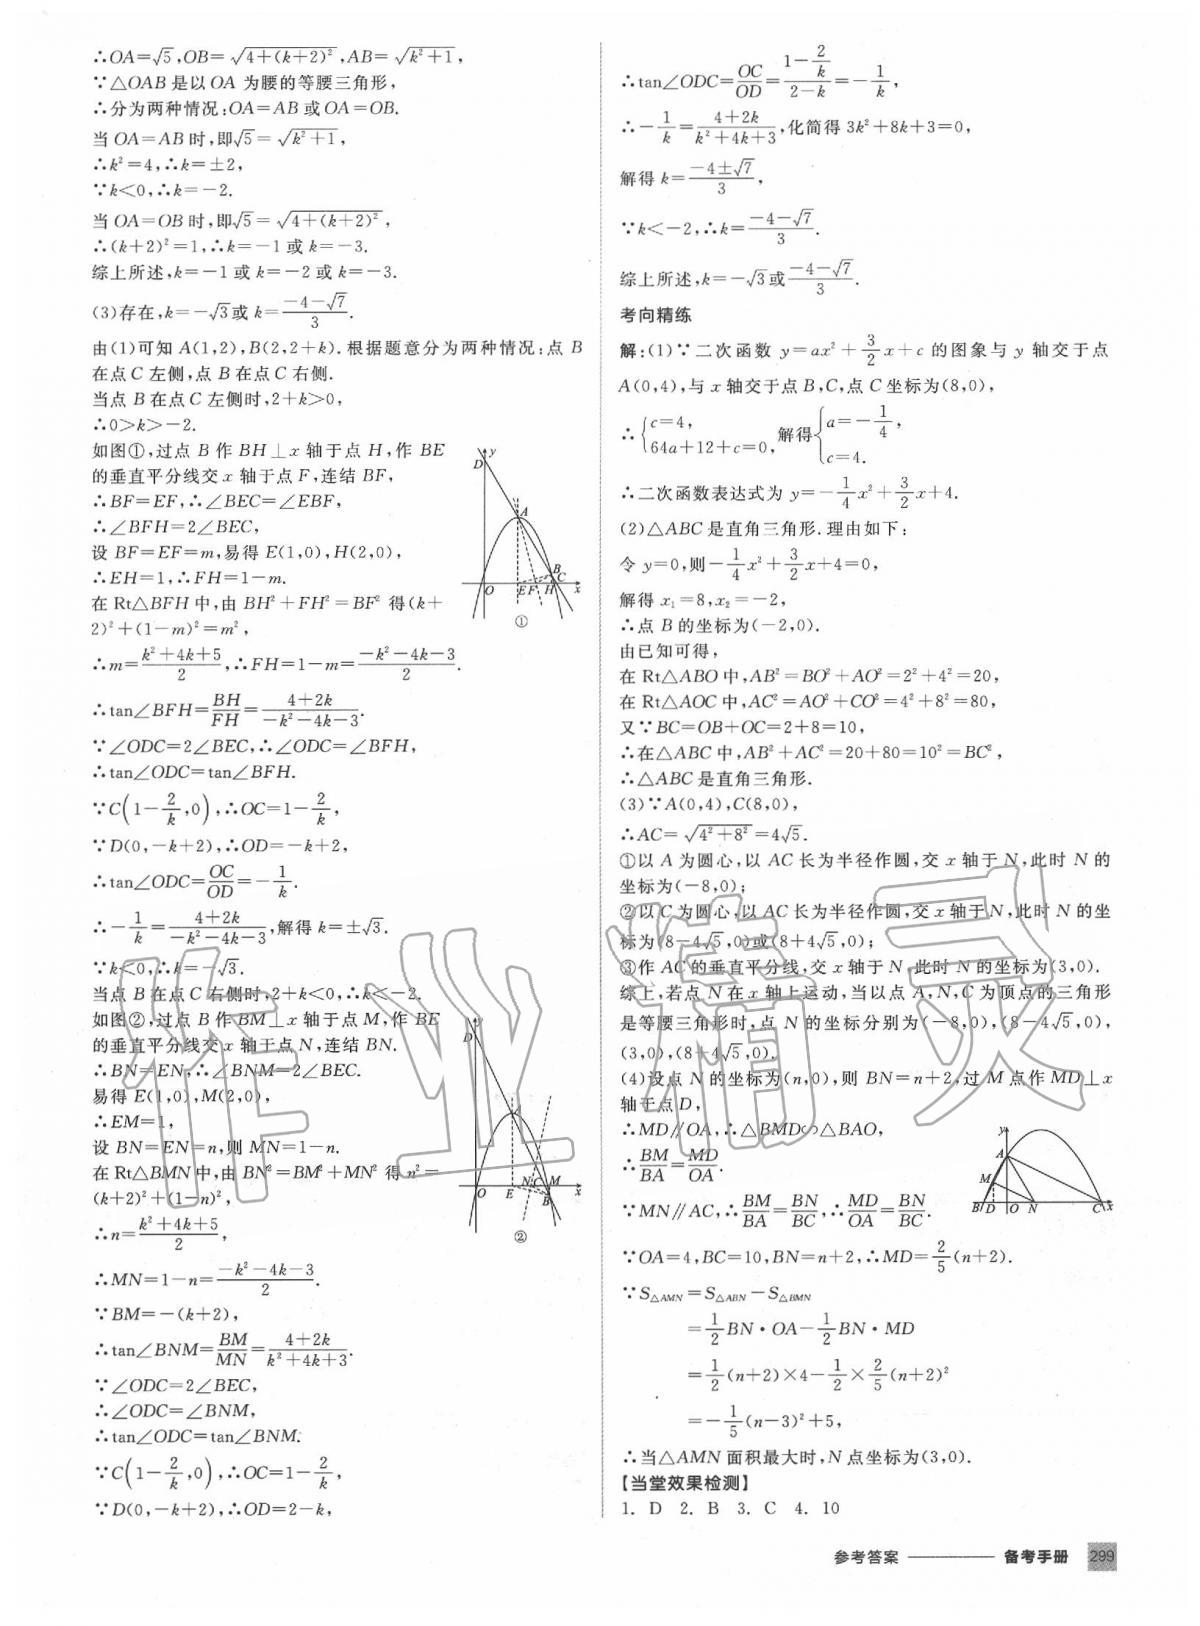 ∴OA=√5,OB=√(4+(k+2)²),AB=√(k²+1),
∵△OAB是以OA为腰的等腰三角形,
∴分为两种情况:OA=AB或OA=OB.
当OA=AB时,即√5=√(k²+1),
∴k²=4,∴k=±2,
∵k<0,∴k=-2.
当OA=OB时,即√5=√(4+(k+2)²),
∴(k+2)²=1,∴k=-1或k=-3.
综上所述,k=-1或k=-2或k=-3.
(3)存在,k=-√3或k=(-4-√7)/3.
由(1)可知A(1,2),B(2,2+k).根据题意分为两种情况:点B
在点C左侧,点B在点C右侧.
当点B在点C左侧时,2+k>0,
∴0>k>-2.
如图①,过点B作BH⊥x轴于点H,作BE
的垂直平分线交x轴于点F,连结BF,
∴BF=EF,∴∠BEC=∠EBF,
∴∠BFH=2∠BEC,
设BF=EF=m,易得E(1,0),H(2,0),
∴EH=1,∴FH=1-m.
在Rt△BFH中,由BH²+FH²=BF²得(k+
2)²+(1-m)²=m²,
∴m=(k²+4k+5)/2,∴FH=1-m=(-k²-4k-3)/2.
∴tan∠BFH=BH/FH=(4+2k)/(-k²-4k-3).
∵∠ODC=2∠BEC,∴∠ODC=∠BFH,
∴tan∠ODC=tan∠BFH.
∵C(1-2/k,0),∴OC=1-2/k,
∵D(0,-k+2),∴OD=-k+2,
∴tan∠ODC=OC/OD=-1/k,
∴-1/k=(4+2k)/(-k²-4k-3),解得k=±√3.
∵k<0,∴k=-√3.
当点B在点C右侧时,2+k<0,∴k<-2.
如图②,过点B作BM⊥x轴于点M,作BE
的垂直平分线交x轴于点N,连结BN.
∴BN=EN,∴∠BNM=2∠BEC.
易得E(1,0),M(2,0),
∴EM=1,
设BN=EN=n,则MN=1-n.
在Rt△BMN中,由BN²=BM²+MN²得n²=
(k+2)²+(1-n)²,
∴n=(k²+4k+5)/2,
∴MN=1-n=(-k²-4k-3)/2.
∵BM=-(k+2),
∴tan∠BNM=BM/MN=(4+2k)/(k²+4k+3).
∵∠ODC=2∠BEC,
∴∠ODC=∠BNM,
∴tan∠ODC=tan∠BNM.
∵C(1-2/k,0),∴OC=1-2/k,
∵D(0,-k+2),∴OD=2-k,
y
D
A
B
C
O
E F H x
①
y
D
A
N C M
O E B x
②
∴tan∠ODC=OC/OD=(1-2/k)/(2-k)=-1/k,
∴-1/k=(4+2k)/(k²+4k+3),化简得3k²+8k+3=0,
解得k=(-4±√7)/3,
∵k<-2,∴k=(-4-√7)/3.
综上所述,k=-√3或(-4-√7)/3.
考向精练
解:(1)∵二次函数y=ax²+3/2x+c的图象与y轴交于点
A(0,4),与x轴交于点B,C,点C坐标为(8,0),
∴{c=4, 64a+12+c=0, 解得{a=-1/4, c=4.
∴二次函数表达式为y=-1/4x²+3/2x+4.
(2)△ABC是直角三角形.理由如下:
令y=0,则-1/4x²+3/2x+4=0,
解得x₁=8,x₂=-2,
∴点B的坐标为(-2,0).
由已知可得,
在Rt△ABO中,AB²=BO²+AO²=2²+4²=20,
在Rt△AOC中,AC²=AO²+CO²=4²+8²=80,
又∵BC=OB+OC=2+8=10,
∴在△ABC中,AB²+AC²=20+80=10²=BC²,
∴△ABC是直角三角形.
(3)∵A(0,4),C(8,0),
∴AC=√(4²+8²)=4√5.
①以A为圆心,以AC长为半径作圆,交x轴于N,此时N的
坐标为(-8,0);
②以C为圆心,以AC长为半径作圆,交x轴于N,此时N的坐
标为(8-4√5,0)或(8+4√5,0);
③作AC的垂直平分线,交x轴于N,此时N的坐标为(3,0).
综上,若点N在x轴上运动,当以点A,N,C为顶点的三角形
是等腰三角形时,点N的坐标分别为(-8,0),(8-4√5,0),
(3,0),(8+4√5,0).
(4)设点N的坐标为(n,0),则BN=n+2,过M点作MD⊥x
轴于点D,
∴MD∥OA,∴△BMD∽△BAO,
∴BM/BA=MD/OA.
∵MN∥AC,∴BM/BA=BN/BC,∴MD/OA=BN/BC.
∵OA=4,BC=10,BN=n+2,∴MD=2/5(n+2).
∵S△AMN=S△ABN-S△BMN
=1/2BN·OA-1/2BN·MD
=1/2(n+2)×4-1/2×2/5(n+2)²
=-1/5(n-3)²+5,
∴当△AMN面积最大时,N点坐标为(3,0).
y
A
M
B D O N C x
【当堂效果检测】
1. D 2. B 3. C 4. 10
参考答案 备考手册 299
作业精灵